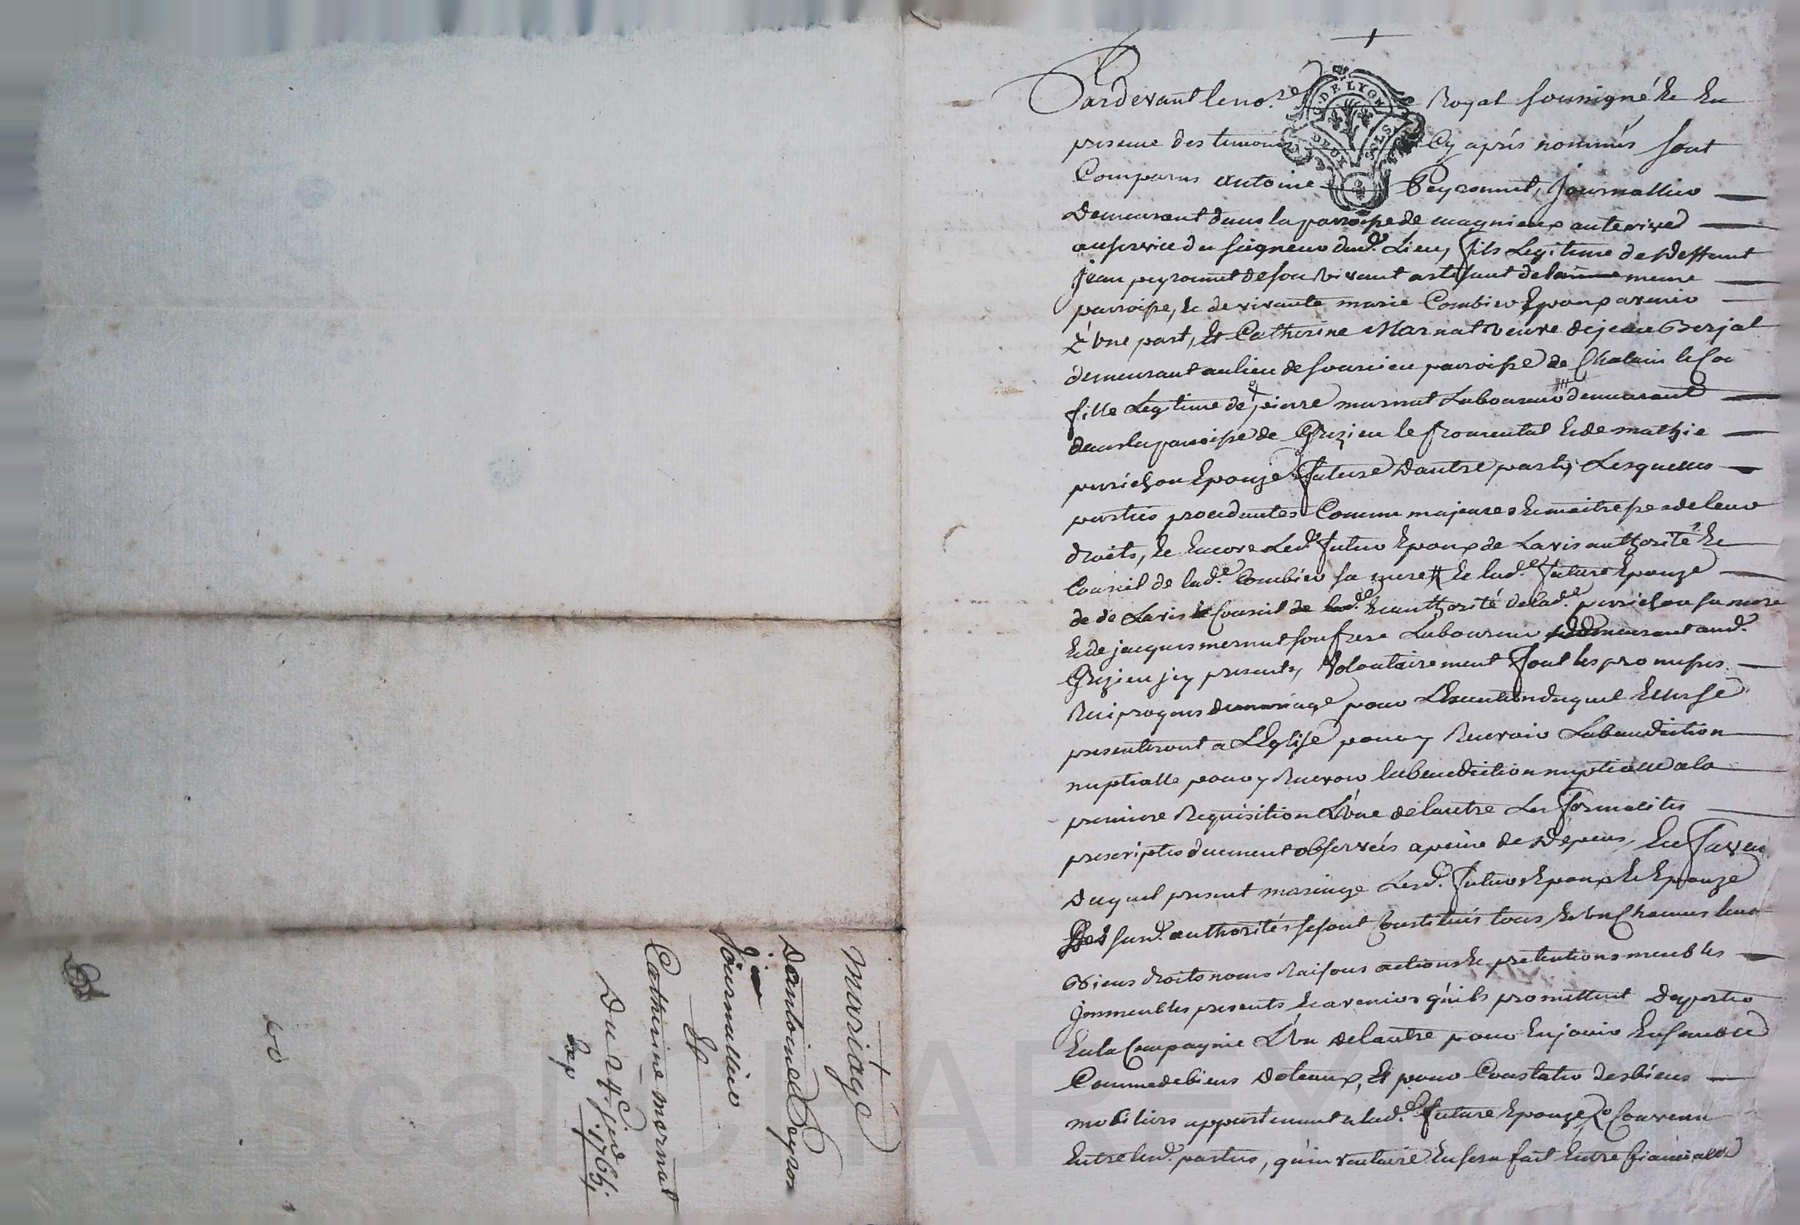 Pardevant le no.re Royal soussigné Et En
presence des temoins Cy aprés nommés sont
Comparus antoine Peyronnet, Journallier
Demeurant dans la parroisse de magnieux auterive
au service du seigneur dud. Lieu, fils Legitime de deffunt
Jean peyronnet de son vivant artisant de la meme
parroisse, Et de vivante marie Combier Epoux avenir
D'une part, Et Catherine Marnat veuve de jean Berjat
demeurant au lieu de sourcieu parroisse de Chalain le Co
fille Legitime de pierre marnat Laboureur demeurant
dans la parroisse de Grezieu le fromental Et de mathie
perrichon Epouze future D'autre part, Lesquelles
parties procedantes Comme majeures Et maitresses de leur
droits, Et Encore Led. futur Epoux de L'avis authorité Et
Conseil de lad.e Combier sa mere Et lad.e future Epouze
de de L'avis Conseil Et authorité de lad.e perrichon sa mere
Et de jacques mernat son frere Laboureur demeurant aud.
Grezieu jcy present, Volontairement font les promesses
Reciproques de mariage pour L'Execution duquel Elles se
presenteront a L'Eglise pour y Recevoir La benediction
nuptialle pour y Recevoir la benediction nuptialle a la
premiere Requisition L'une de l'autre Les formalités
prescriptes duement observées a peine de Dépens, En faveur
Duquel present mariage Lesd. futurs Epoux Et Epouze
susd. authorités se sont Constitués tous Et Un Chacuns leur
Biens droits noms Raisons actions Et pretentions meubles
Jmmeubles presents Et avenir qu'ils promettent D'apporter
En la Compagnie L'un de l'autre pour En jouir Ensemble
Comme de biens Doteaux, Et pour Constater des biens
mobiliers appartenant a lad.e future Epouze Convenu
Entre Lesd. parties, qu'inventaire En sera fait Entre
G. DE LYON
DEUX SOLS
mariage
D'antoine Peyron
Journallier
Et
Catherine mernat
Du 24
1766.
Exp
60
pascal CHAREYRON